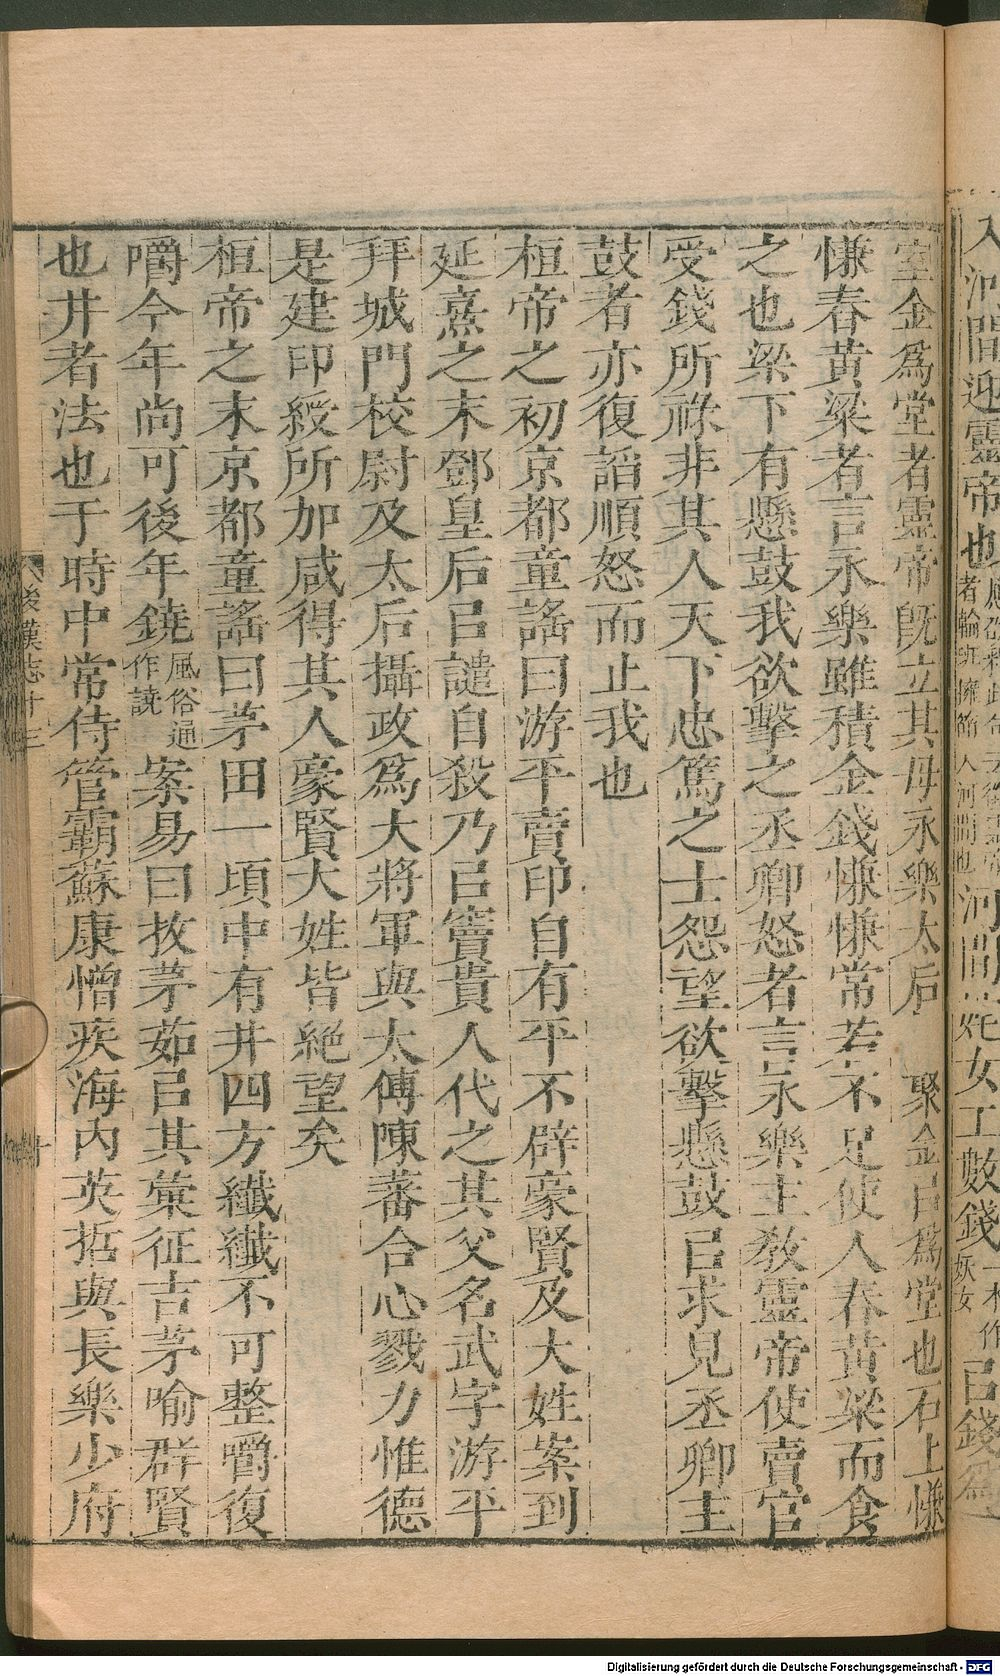 入河間迎靈帝也
者輪班擁節入河間也
河間姹女工數錢
一本作妖女
㠯錢爲
室金爲堂者靈帝旣立其母永樂太后聚金㠯爲堂也石上慊
慊舂黄粱者言永樂雖積金錢慊慊常若不足使人舂黄粱而食
之也梁下有懸鼓我欲擊之丞卿怒者言永樂主敎靈帝使賣官
受錢所祿非其人天下忠篤之士怨望欲擊懸鼓㠯求見丞卿主
鼓者亦復諂順怒而止我也
桓帝之初京都童謠曰游平賣印自有平不辟豪賢及大姓案到
延熹之末鄧皇后㠯譴自殺乃㠯竇貴人代之其父名武字游平
拜城門校尉及太后攝政爲大將軍與太傅陳蕃合心戮力惟德
是建印綬所加咸得其人豪賢大姓皆絕望矣
桓帝之末京都童謠曰茅田一頃中有井四方纖纖不可整嚼復
嚼今年尚可後年鐃風俗通作譊案易曰拔茅茹㠯其彙征吉茅喻群賢
也井者法也于時中常侍管霸蘇康憎疾海内英哲與長樂少府
後漢志十三
十
Digitalisierung gefördert durch die Deutsche Forschungsgemeinschaft - DFG